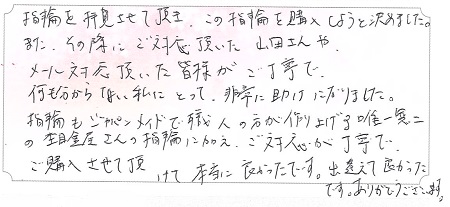 指輪を拝見させて頂き、この指輪を購入しようと決めました。
また、その際にご対応頂いた山田さんや、
メール対応頂いた皆様がご丁寧で、
何も分からない私にとって、非常に助けになりました。
指輪もジャパンメイドで職人の方が作り上げる唯一無二
の杢目金屋さんの指輪に加え、ご対応が丁寧で、
ご購入させて頂けて本当に良かったです。出逢えて良かった
です。ありがとうございます。